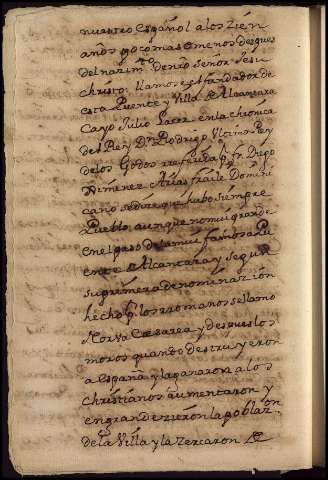 nuestro español a los zien
años poco mas o menos despues
del nazimto. de nro señor Jesu
christo. llamose el fundador de
esta Puente y Villa de Alcantara
Cayo Julio Lacer. en la chronica
del Rey Dn. Rodrigo Ultimo Rey
de los Godos rreferida pr. fr. Diego
Ximenez Arias fraile Domini
cano se dize que hubo siempre
Pueblo, aunque no mui grande
en el paso de la mui famosa Pu
ente de Alcantara, y segun
su primera denominazion
hecho pr. los rromanos se llamo
Norva Cæsarea, y despues los
moros quando destruyeron
a españa, y la ganaron a los
christianos, aumentaron y
engrandezieron la poblazon.
de la Villa, y la zercaron de